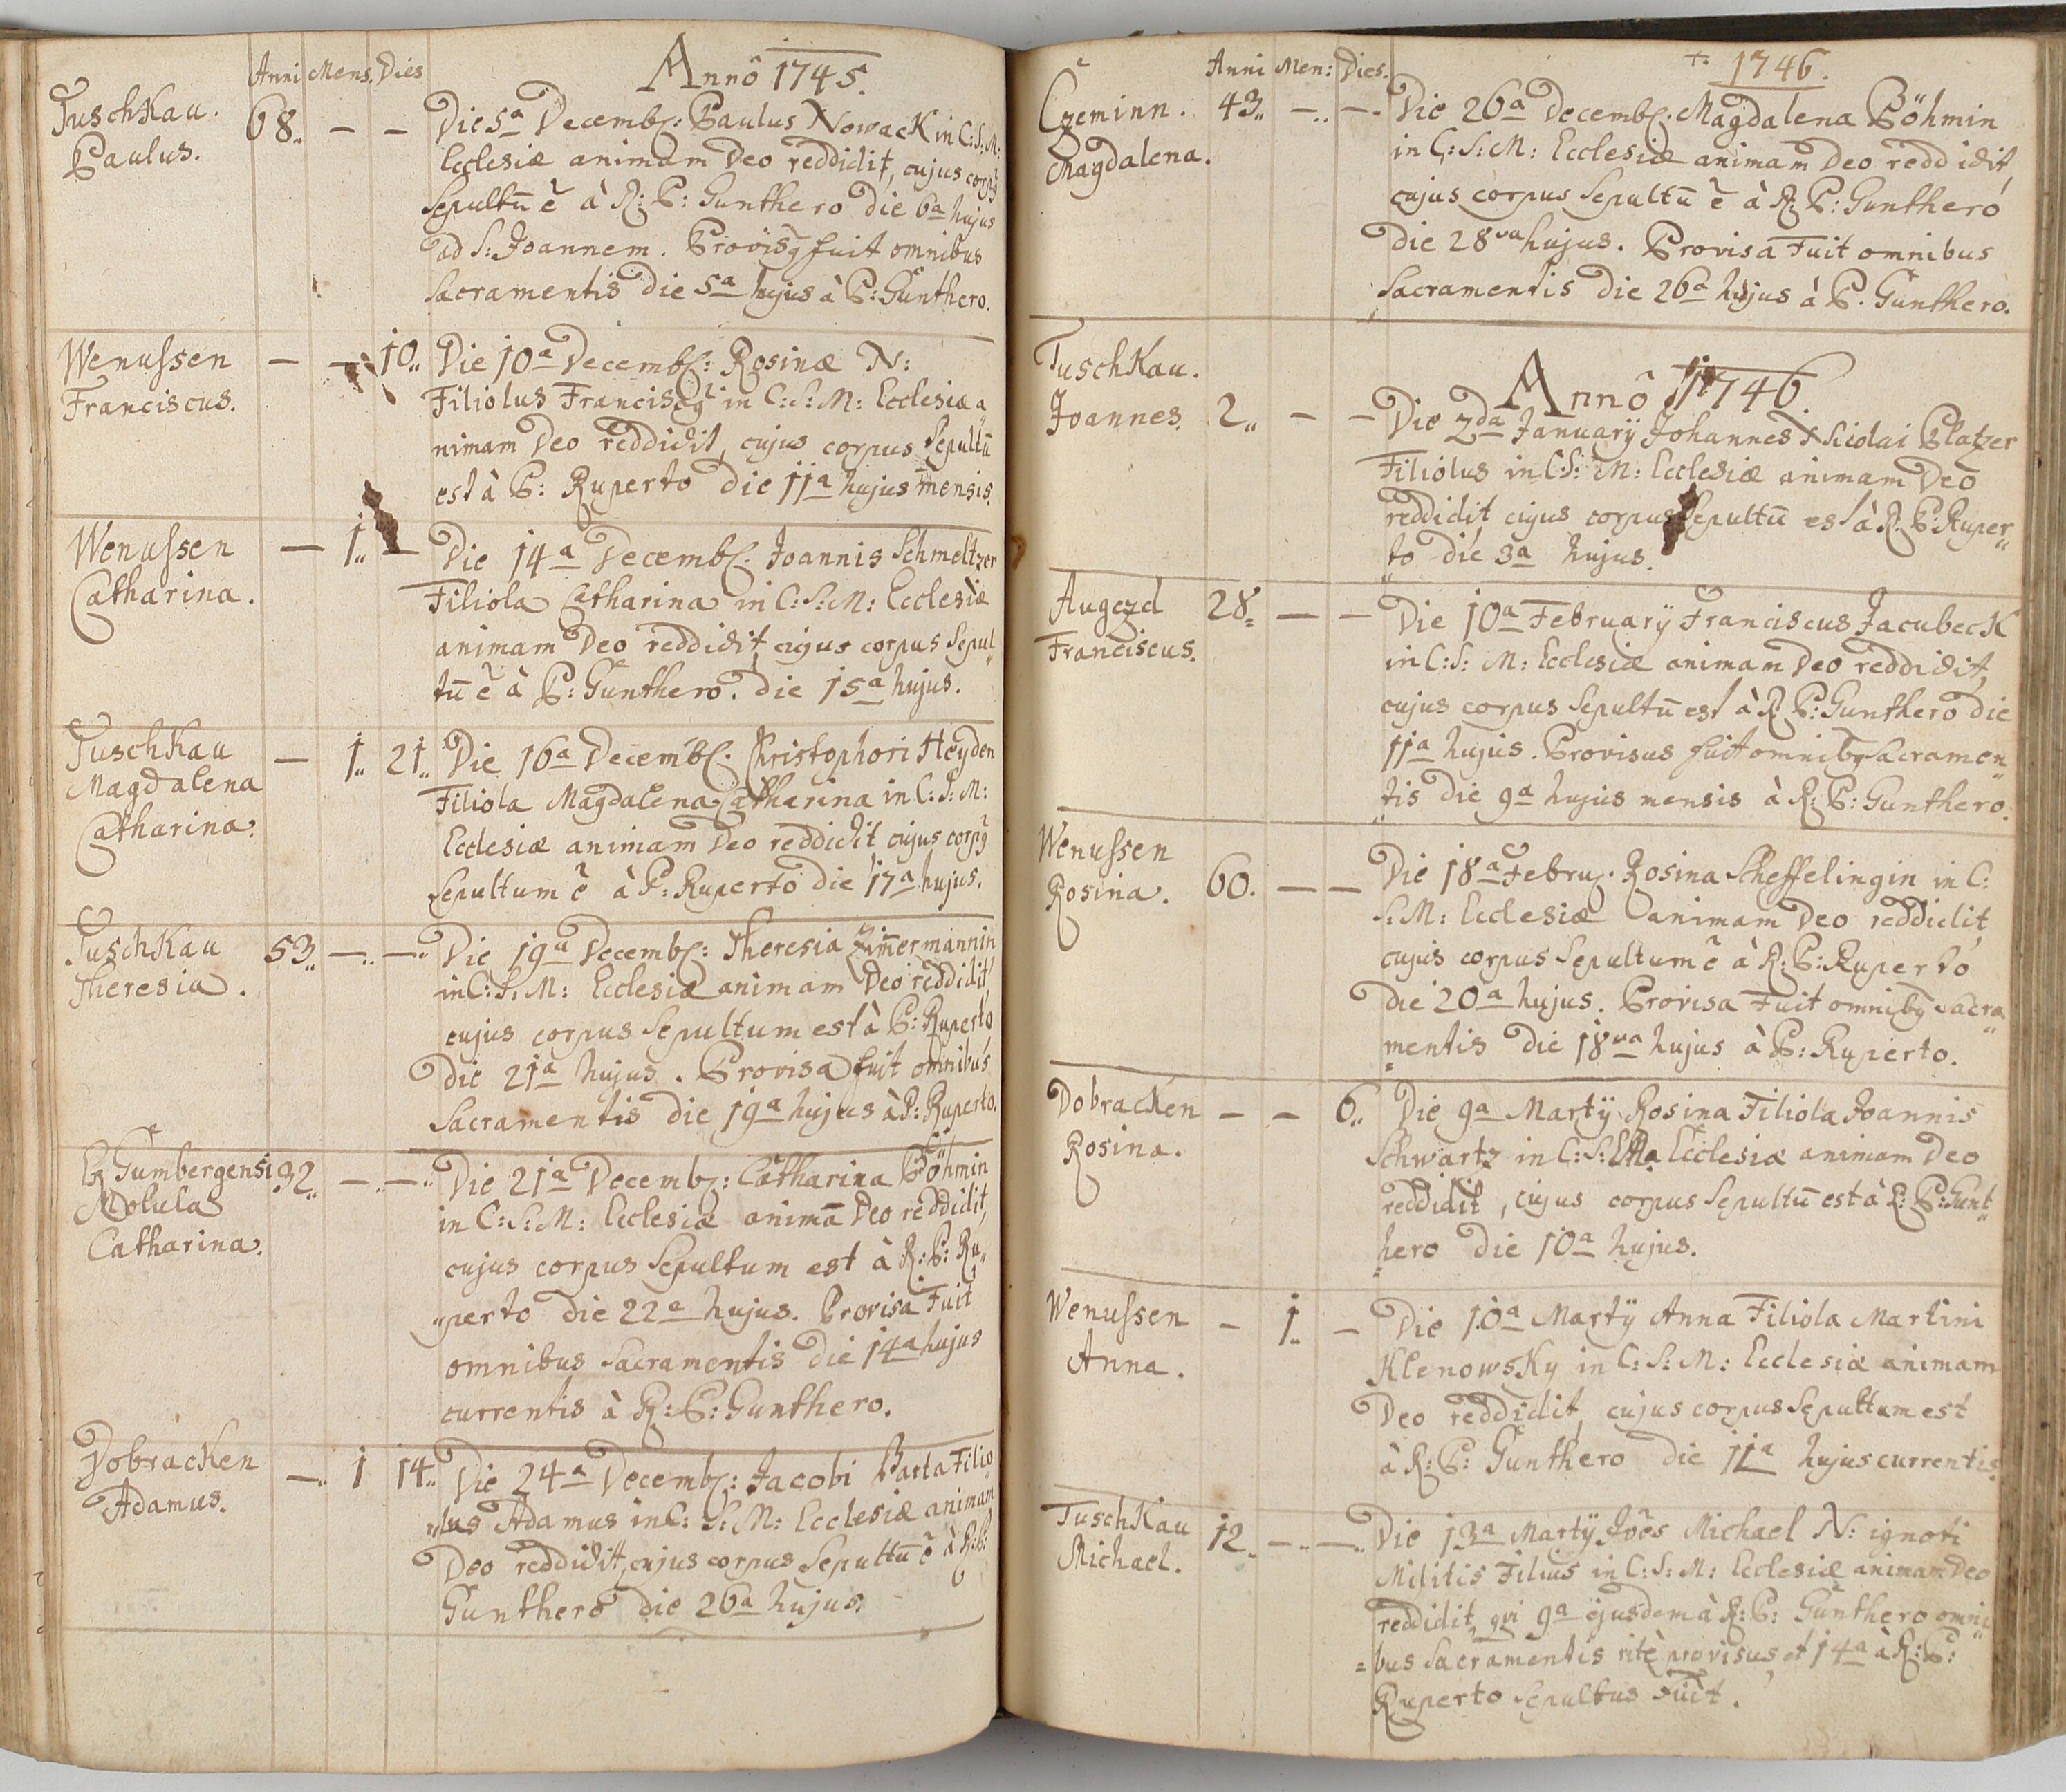 Anni Mens. Dies
Annô 1745.
Tuschkau.
Paulus.
68.. — —
Die 5a Decemb: Paulus Nowack in C: S: M:
Ecclesiæ animam Deo reddidit, cujus corpq
Sepultū ẽ à R: P: Gunthero die 6a hujus
ad S: Joannem. Provisq fuit omnibus
Sacramentis die 5a hujus à P: Gunthero.
Wenussen
Franciscus.
— — 10..
Die 10a Decemb: Rosinæ N:
Filiolus Franciscq in C: S: M: Ecclesiæ a
nimam Deo reddidit, cujus corpus Sepultū
est à P: Ruperto die 11a hujus mensis.
Wenussen
Catharina.
— 1.. —
Die 14a Decemb. Joannis Schmeltzer
Filiola Catharina in C: S: M: Ecclesiæ
animam Deo reddidit cujus corpus Sepul„
tū ẽ à P: Gunthero. die 15a hujus.
Tuschkau
Magdalena
Catharina.
— 1.. 21..
Die 16a Decemb. Christophori Heyden
Filiola Magdalena Catharina in C: S: M:
Ecclesiæ animam Deo reddidit cujus corpq
Sepultum ẽ à P: Ruperto die 17a hujus.
Tuschkau
Theresia.
53.. —.. —..
Die 19a Decemb: Theresia Zim̄ermannin
in C: S: M: Ecclesiæ animam Deo reddidit
cujus corpus Sepultum est à P: Ruperto
die 21a hujus. Provisa fuit omnibus
Sacramentis die 19a hujus à P: Ruperto.
Gumbergensi
Molula
Catharina.
92.. —.. —..
Die 21a Decemb: Catharina Böhmin
in C: S: M: Ecclesiæ animā Deo reddidit,
cujus corpus Sepultum est à R: P: Ru„
„perto die 22a hujus. Provisa Fuit
omnibus Sacramentis die 14a hujus
currentis à R: P: Gunthero.
Dobracken
Adamus.
—.. 1 14..
Die 24a Decemb: Jacobi Barta Filio
„lus Adamus in C: S: M: Ecclesiæ animam
Deo reddidit, cujus corpus Sepultū ẽ à R: P:
Gunthero die 26a hujus.
Anni Men: Dies.
+. 1746.
Czeminn.
Magdalena.
43.. —.. —.
Die 26a Decemb. Magdalena Böhmin
in C: S: M: Ecclesiæ animam Deo reddidit,
cujus corpus Sepultū ẽ à R: P: Gunthero
die 28va hujus. Provisa Fuit omnibus
Sacramentis die 26a hujus à P. Gunthero.
Annô 1746
Tuschkau.
Joannes.
2.. — —
Die 2da Januarÿ Johannes Nicolai Platzer
Filiolus in C: S: M: Ecclesiæ animam Deo
reddidit cujus corpus Sepultū est à R. P: Ruper„
„to die 3a hujus.
Augezd
Franciscus.
28.. — —
Die 10a Februarÿ Franciscus Jacubeck
in C: S: M: Ecclesiæ animam Deo reddidit,
cujus corpus Sepultū est à R P: Gunthero die
11a hujus. Provisus fuit omnibq Sacramen„
„tis die 9a hujus mensis à R: P: Gunthero.
Wenussen
Rosina.
60. — —
Die 18a Febru. Rosina Scheffelingin in C:
S: M: Ecclesiæ animam Deo reddidit,
cujus corpus Sepultum ẽ à R: P: Ruperto
die 20a hujus. Provisa Fuit omnibq Sacra„
=mentis die 18va hujus à P: Ruperto.
Dobracken
Rosina.
— — 6..
Die 9a Martÿ Rosina Filiola Joannis
Schwartz in C: S: Ecclesiæ animam Deo
reddidit, cujus corpus Sepultū est à R: P: Gunt„
=hero die 10a hujus.
Wenussen
Anna.
— 1.. —
Die 10a Martÿ Anna Filiola Martini
Klenowsky in C: S: M: Ecclesiæ animam
Deo reddidit, cujus corpus Sepultum est
à R: P: Gunthero die 11a hujus currentis.
Tuschkau
Michael.
12.. —.. —..
Die 13a Martÿ Jões Michael N: ignoti
Militis Filius in C: S: M: Ecclesiæ animam Deo
reddidit, qvi 9a ejusdem à R: P: Gunthero omni„
=bus Sacramentis ritè provisus, et 14a à R: P:
Ruperto Sepultus Fuit.